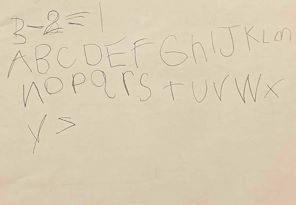 3-2=1
ABCDEFGhIJKLm
nopqrs tuvwx
y >